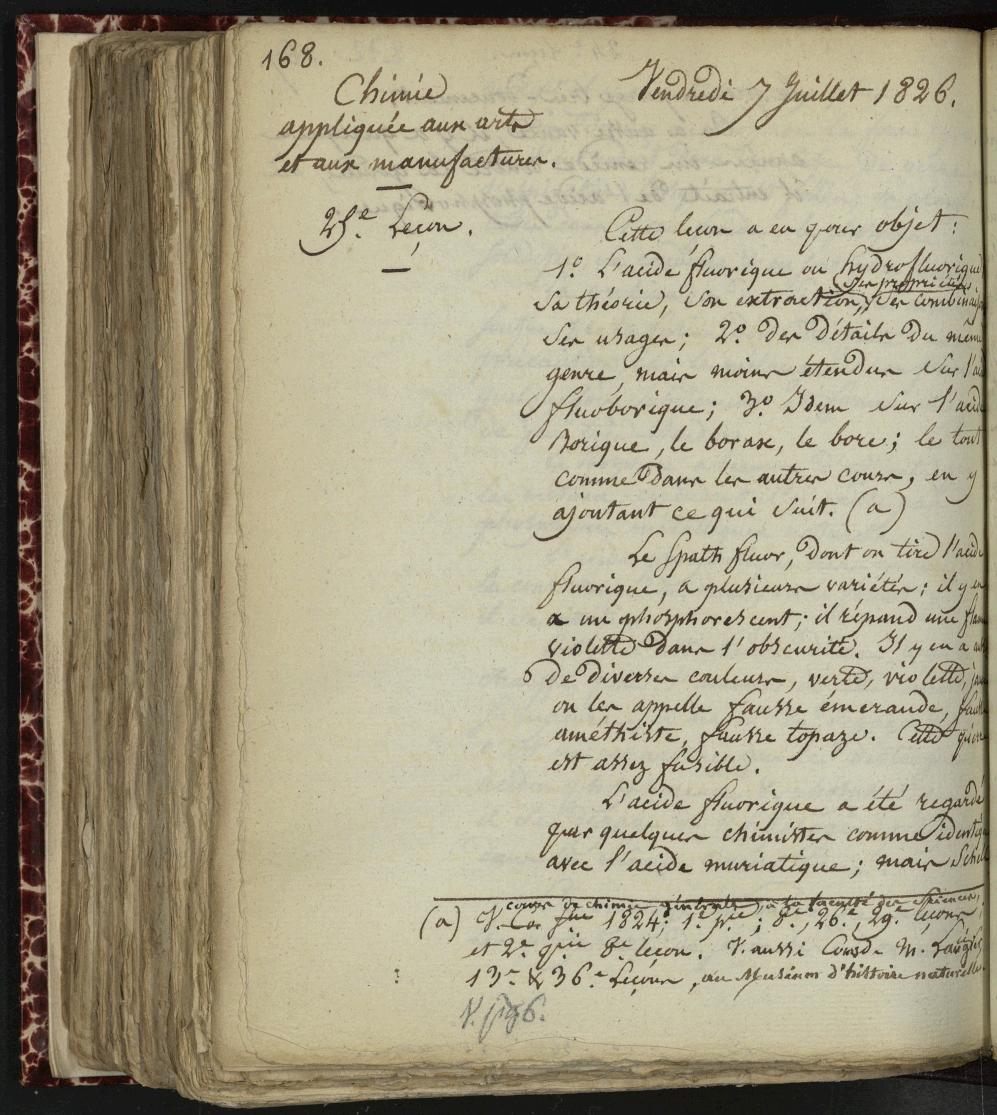 168.
Chimie
appliquée aux arts
et aux manufactures.
25.e Leçon.
Vendredi 7 Juillet 1826.
Cette leçon a eu pour objet :
1.o L'acide fluorique ou hydrofluorique
ses propriétés
Sa théorie, son extraction, ses combinais
ses usages ; 2.o Des Détails du mêm
genre, mais moins étendus sur l'aci
fluoborique ; 3.o Idem sur l'acide
Borique, le borax, le bore ; le tout
comme dans les autres cours, en y
ajoutant ce qui suit. (a)
Le Spath fluor, dont on tire l'acide
fluorique, a plusieurs variétés ; il y en
a un phosphorescent ; il répand une flam
violette dans l'obscurité. Il y en a au
de diverses couleurs, verte, violette, jau
on les appelle fausse émeraude, fauss
améthiste, fausse topaze. Cette
est assez fusible.
L'acide fluorique a été regardé
par quelques chimistes comme identiq
avec l'acide muriatique ; mais Schel
cours de chimie générale à la faculté des Sciences,
(a) V. 1824 ; 1.e p.ie ; 8.e, 26.e, 29.e leçons,
et 2.e p.ie 8.e leçon. V. aussi Cours de M. Laugier,
13.e & 36.e Leçons, au Muséum d'histoire naturelle.
V. fig 6.